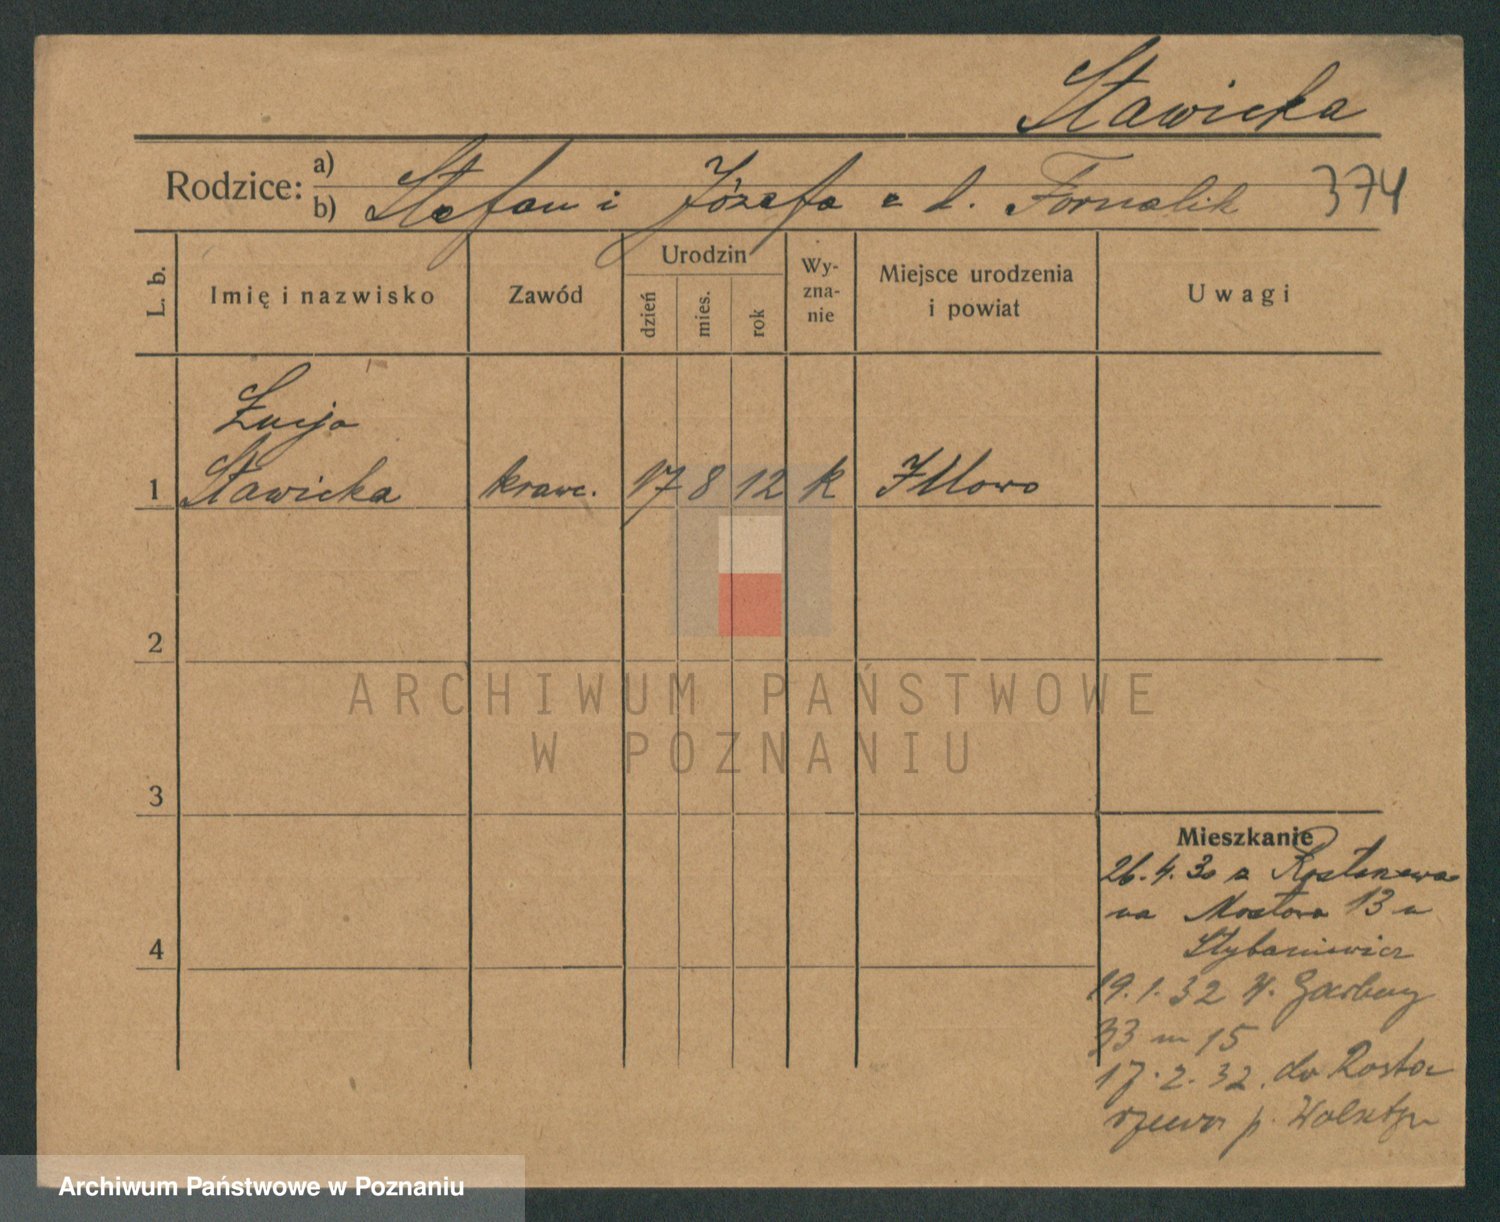 Stawicka
Rodzice: a)
b) Stefan i Józefa z d. Fornalik 374
L. b. Imię i nazwisko Zawód Urodzin Wy-zna-nie Miejsce urodzenia i powiat Uwagi
dzień mies. rok
Łucja
1 Stawicka krawc. 17 8 12 k Iłłowo
2
ARCHIWUM PAŃSTWOWE
W POZNANIU
3
Mieszkanie
26.4.30 z
na Mostowa 13 u
Stybaniewicz
19.1.32 W. Garbary
33 m 15
17.2.32. do Rosta
rzewa p. Wolsztyn
4
Archiwum Państwowe w Poznaniu